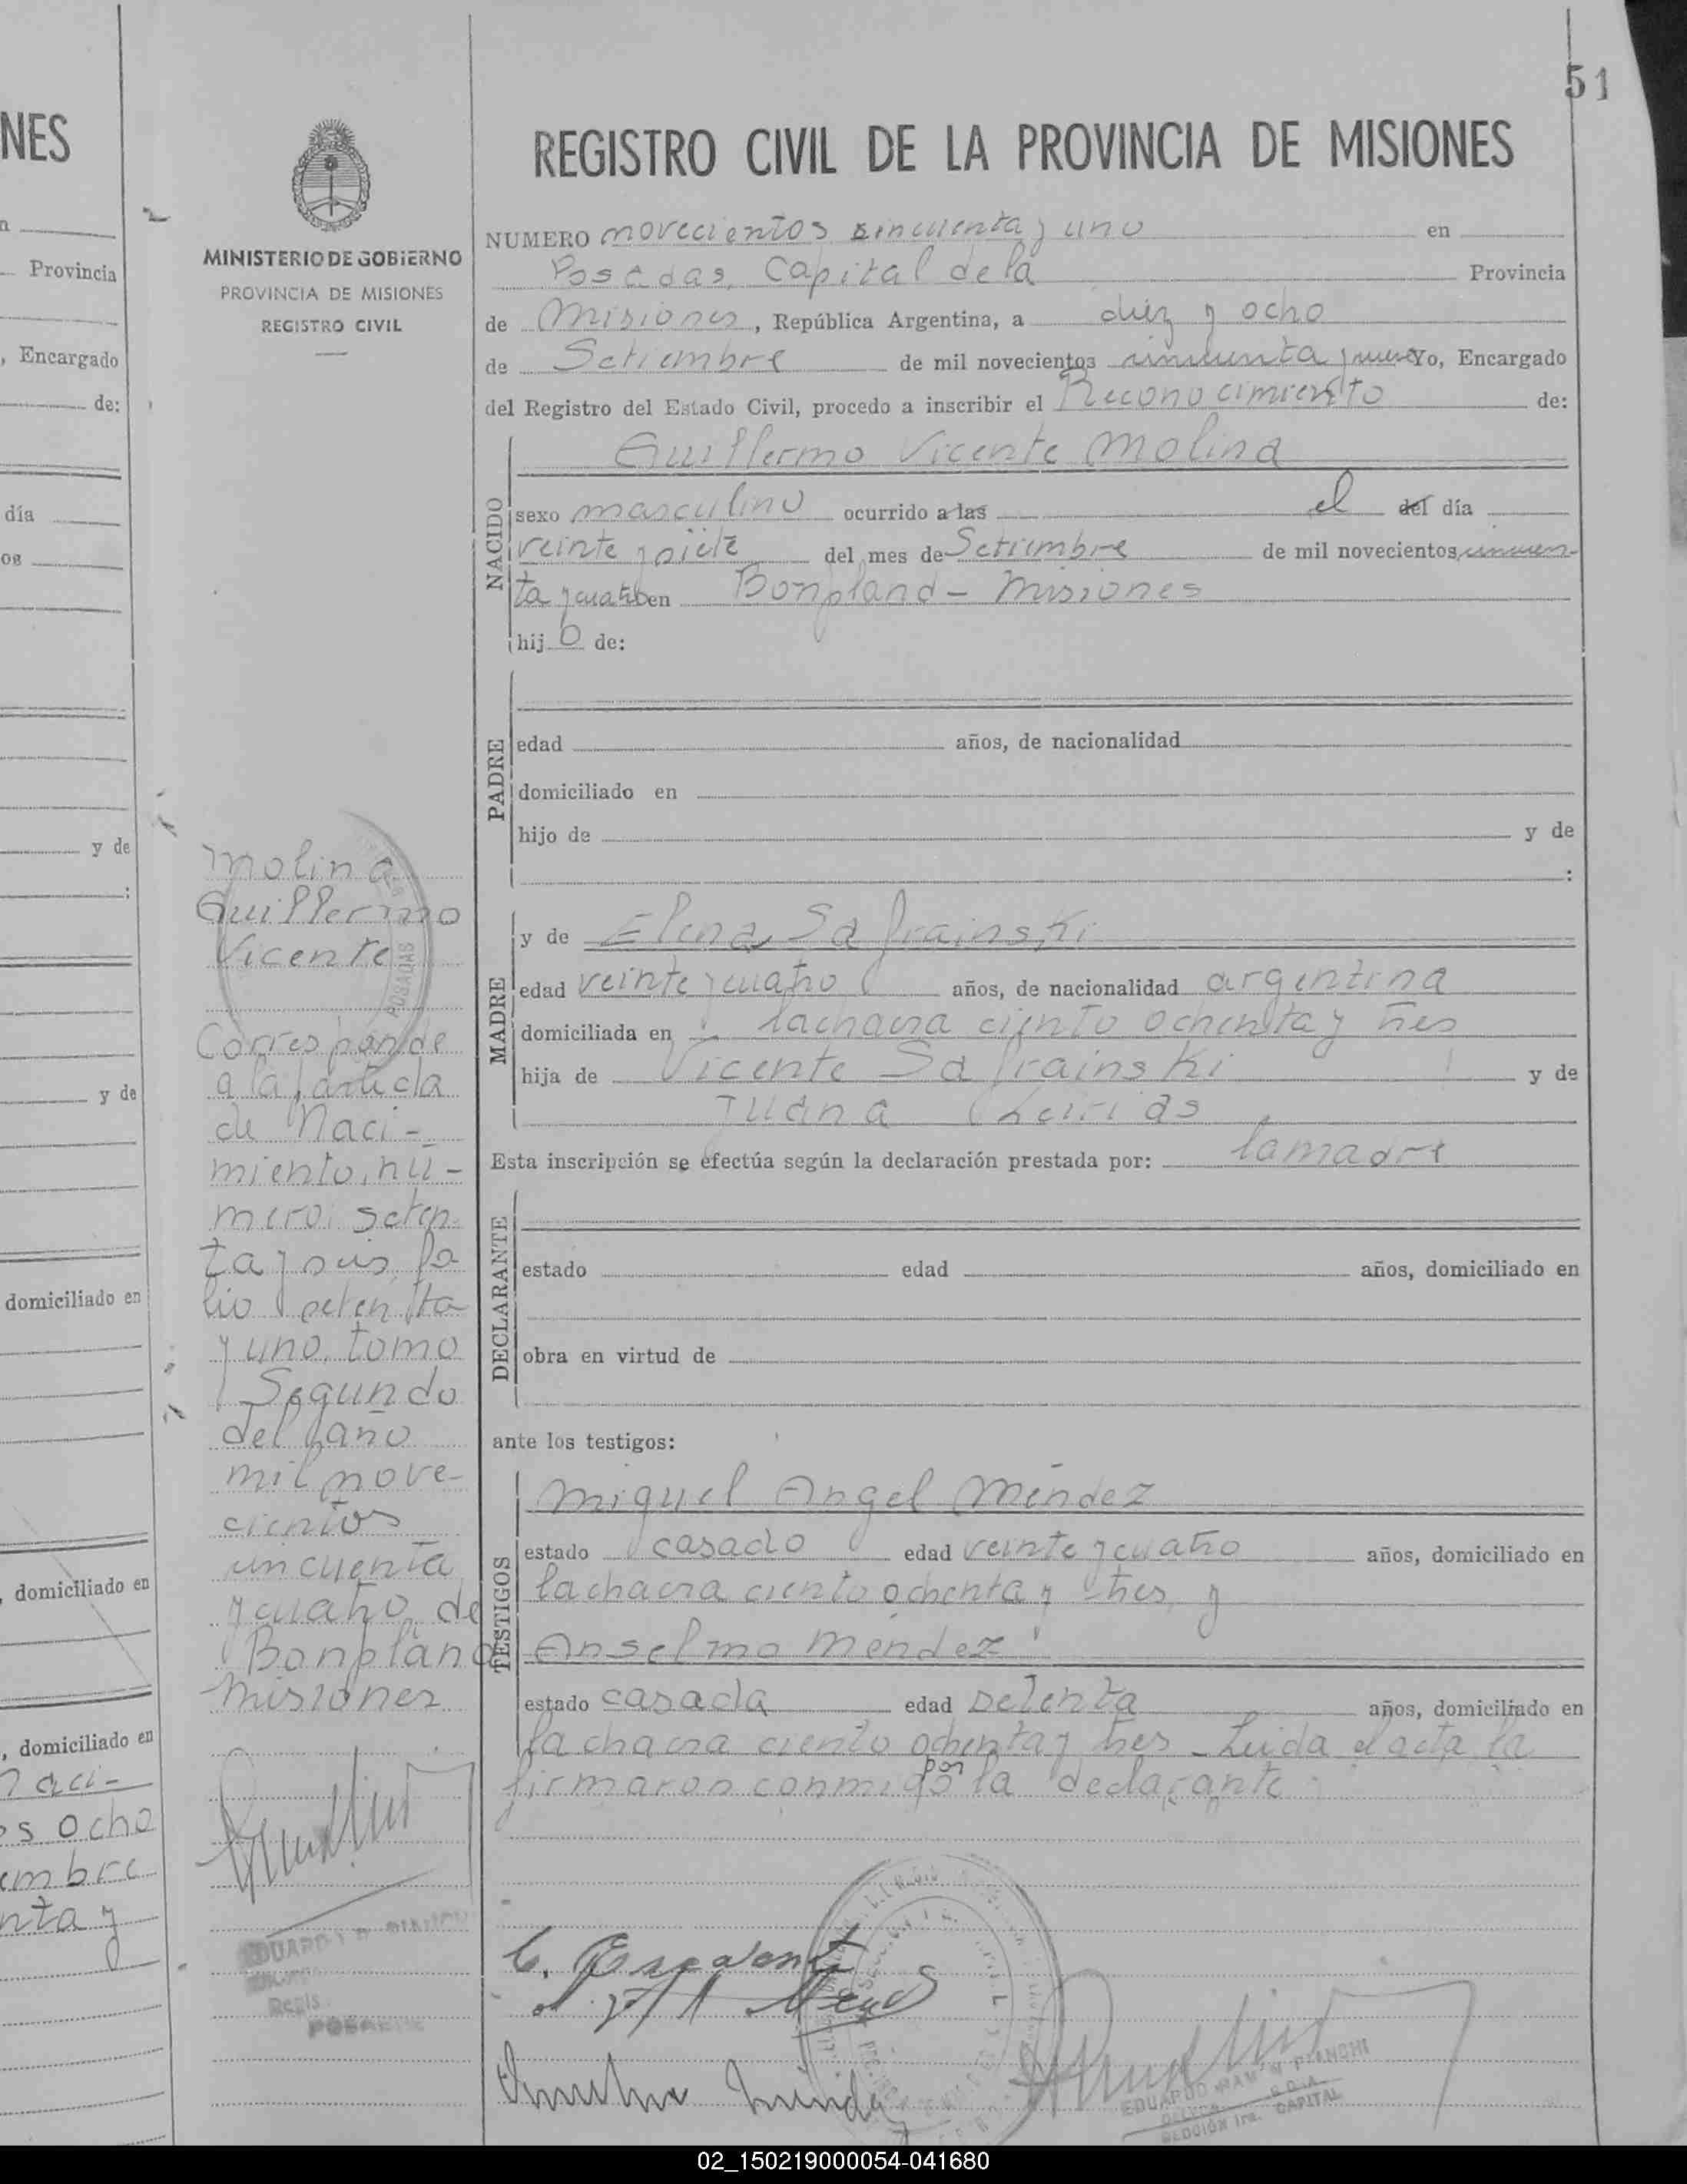 51
NES
Provincia
, Encargado
de:
día
os
y de
y de
domiciliado en
, domiciliado en
, domiciliado en
naci-
s ocho
embre
nta y
MINISTERIO DE GOBIERNO
PROVINCIA DE MISIONES
REGISTRO CIVIL
Molina
Guillermo
Vicente
POSADAS
Corresponde
a la partida
de Naci-
miento, nú-
mero seten-
ta y seis, fo
lio setenta
y uno, tomo
Segundo
del año
mil nove-
cientos
cincuenta
y cuatro, de
Bonpland
Misiones
REGISTRO CIVIL DE LA PROVINCIA DE MISIONES
NUMERO novecientos cincuenta y uno en
Posadas, Capital de la Provincia
de Misiones, República Argentina, a diez y ocho
de Setiembre de mil novecientos cincuenta y nueve Yo, Encargado
del Registro del Estado Civil, procedo a inscribir el Reconocimiento de:
Guillermo Vicente Molina
NACIDO
sexo masculino ocurrido a las el del día
veinte y siete del mes de Setiembre de mil novecientos cincuen-
ta y cuatro en Bonpland - Misiones
hijo de:
PADRE
edad años, de nacionalidad
domiciliado en
hijo de y de
:
MADRE
y de Elena Safrainski
edad veinte y cuatro años, de nacionalidad argentina
domiciliada en la chacra ciento ochenta y tres
hija de Vicente Safrainski y de
Juana
Esta inscripción se efectúa según la declaración prestada por: la madre
DECLARANTE
estado edad años, domiciliado en
obra en virtud de
ante los testigos:
TESTIGOS
Miguel Angel Méndez
estado casado edad veinte y cuatro años, domiciliado en
la chacra ciento ochenta y tres, y
Anselmo Mendez
estado casada edad setenta años, domiciliado en
la chacra ciento ochenta y tres - Leida el acta la
firmaron conmigo por la declarante
EDUARDO RAMON BIANCHI
SECCIÓN 1ra. CAPITAL
02_150219000054-041680